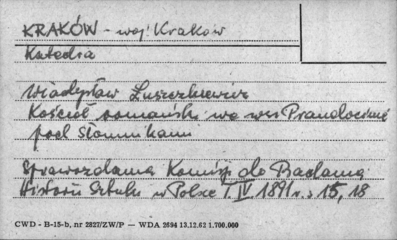 KRAKÓW - woj. Kraków
Katedra
Władysław Łuszczkiewicz
Kościół romański we wsi Prandocinie
pod Słomnikami
Sprawozdania Komisji do Badania
Historii Sztuki w Polsce T. IV 1891 r. s 15, 18
CWD - B-15-b, nr 2827/ZW/P — WDA 2694 13.12.62 1.700.000